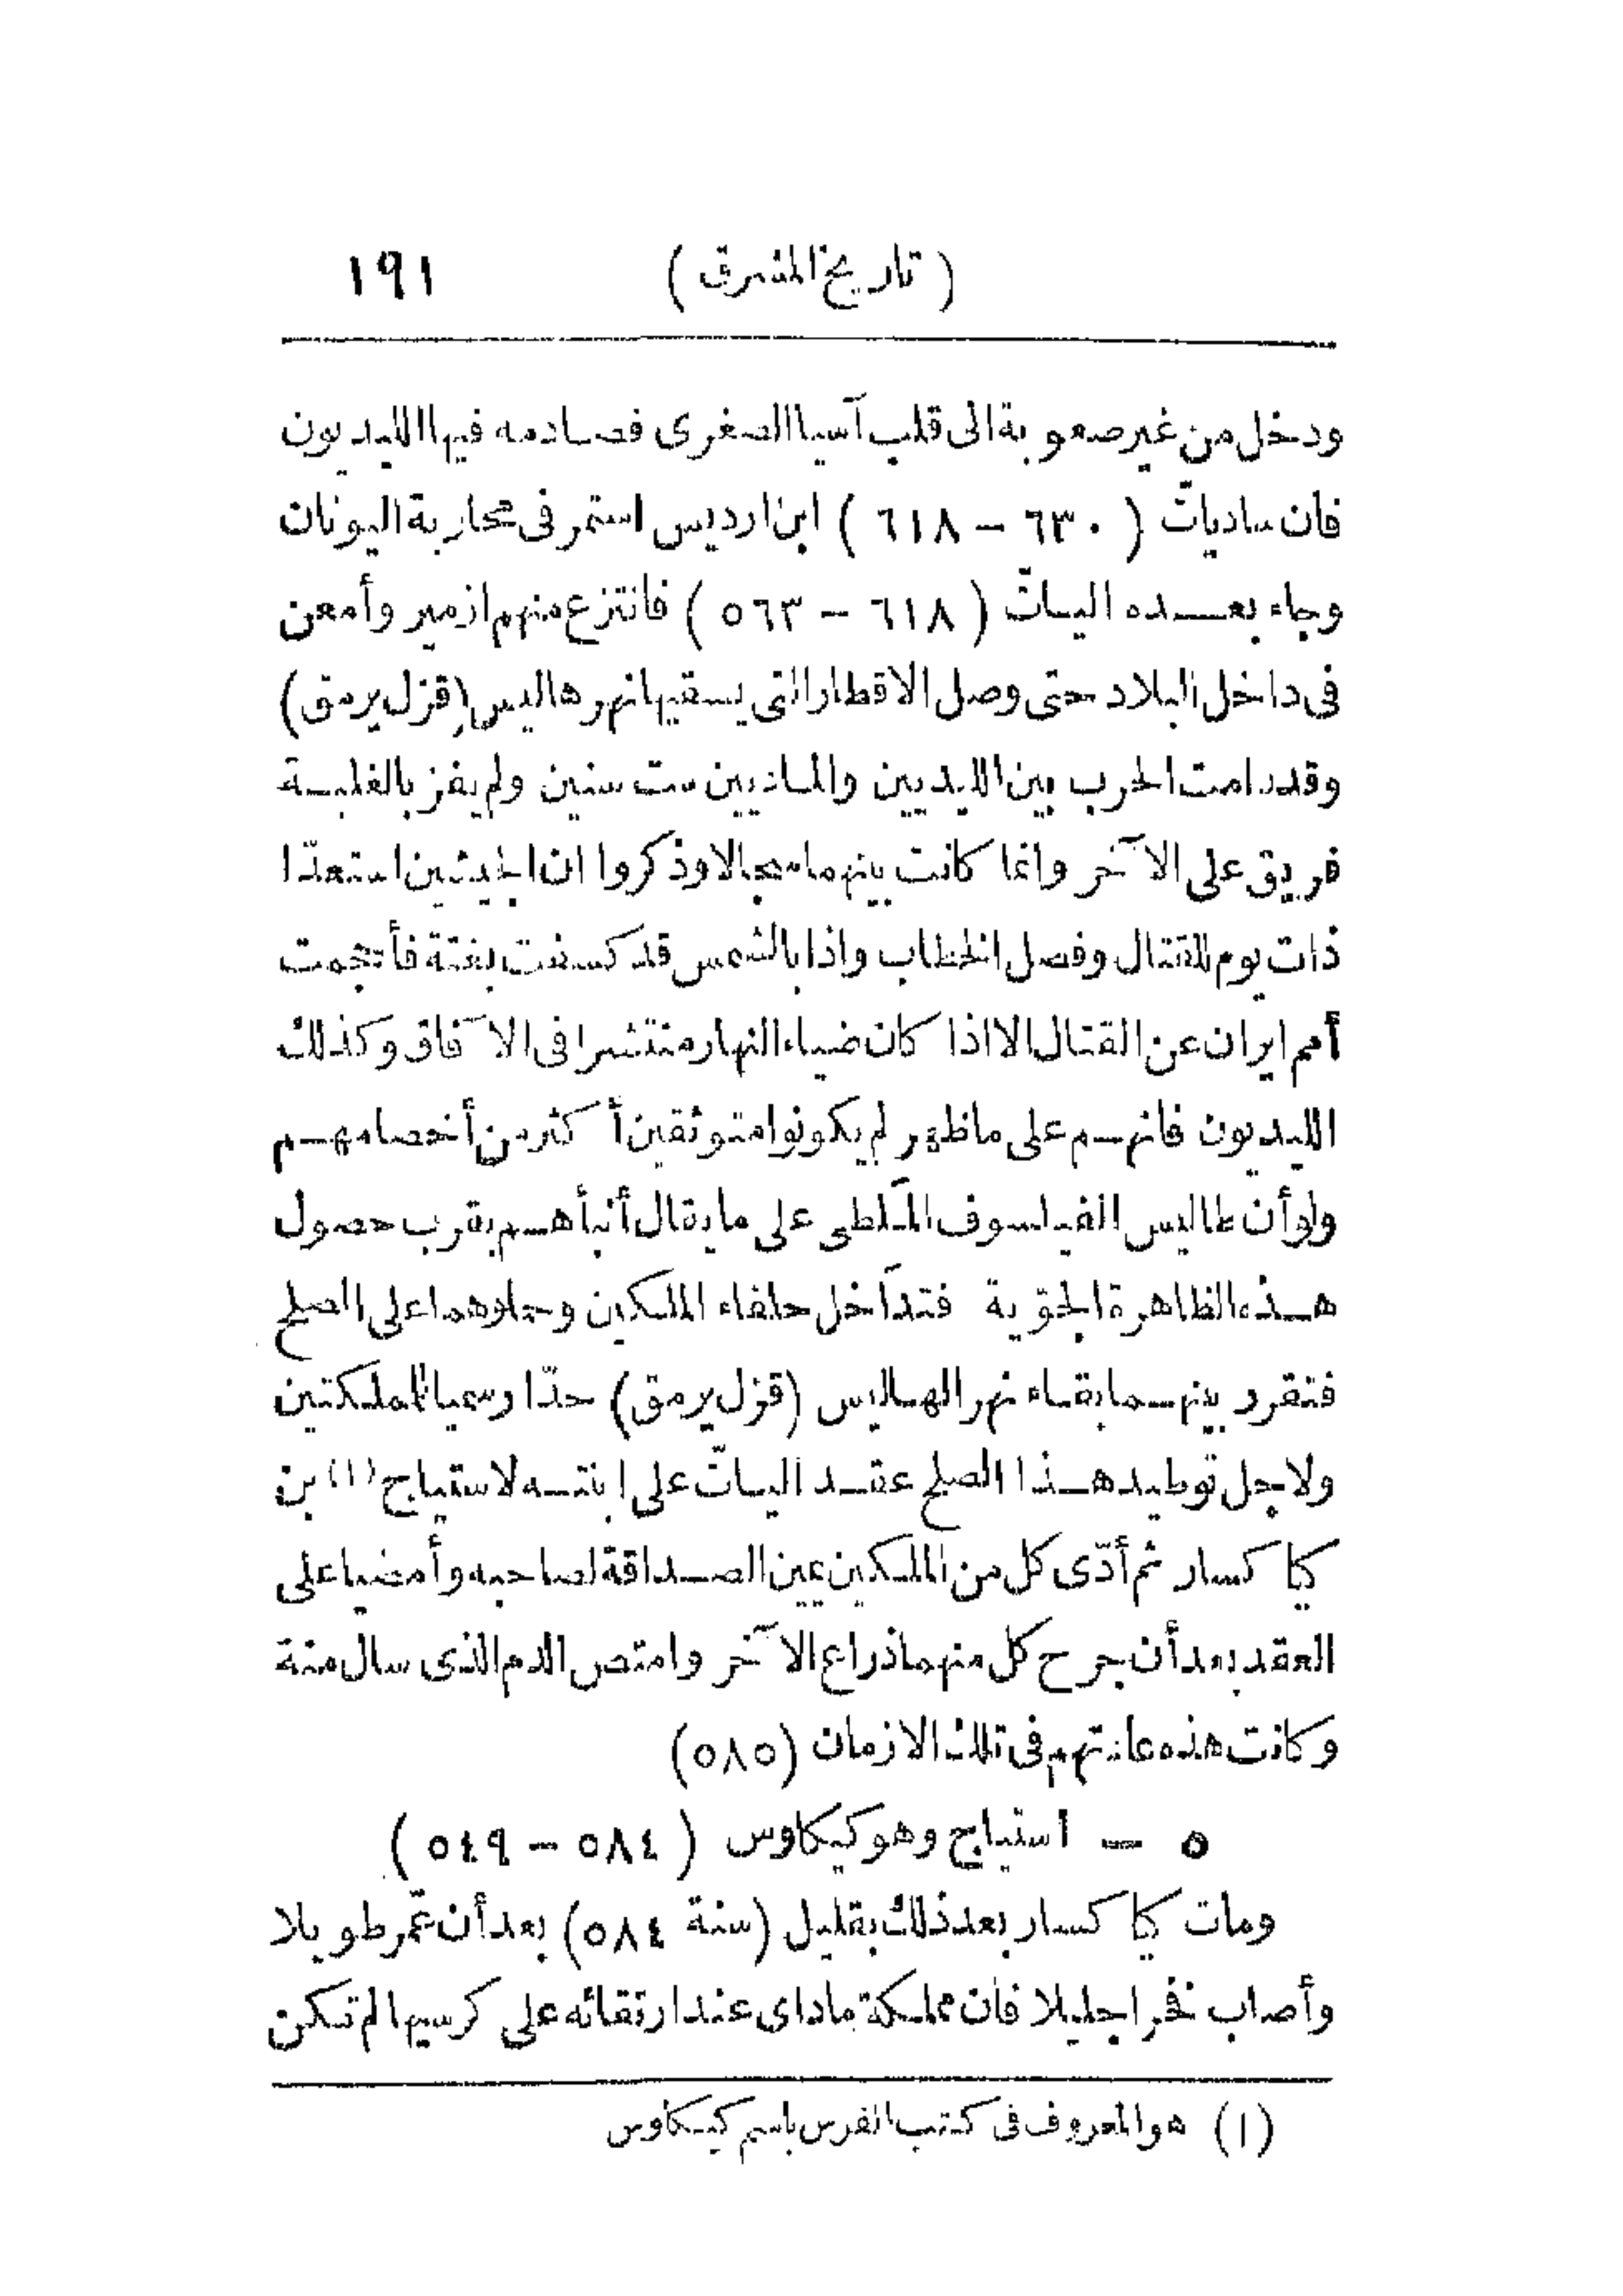 ( تاريخ المشرق ) ١٩١
ودخل من غير صعوبة الى قلب آسيا الصغرى فصادمه فيها الليديون
فان ساديات ( ٦٣٠ – ٦١٨ ) ابن ارديس استمر فى محاربة اليونان
وجاء بعده اليات ( ٦١٨ – ٥٦٣ ) فانتزع منهم ازمير وأمعن
فى داخل البلاد حتى وصل الاقطار التى يسقيها نهر هاليس (قزل يرمق)
وقد دامت الحرب بين الليديين والماديين ست سنين ولم يفز بالغلبة
فريق على الآخر وانما كانت بينهما سجالا وذكروا ان الجيشين استعدّا
ذات يوم للقتال وفصل الخطاب واذا بالشمس قد كسفت بغتة فأحجمت
أمم ايران عن القتال الا اذا كان ضياء النهار منتشرا فى الآفاق وكذلك
الليديون فانهم على ما ظهر لم يكونوا متوثقين أكثر من أخصامهم
ولو أن طاليس الفيلسوف الملطى على ما يقال أنبأهم بقرب حصول
هذه الظاهرة الجوّية فتداخل حلفاء الملكين وحملوهما على الصلح
فتقرر بينهما بقاء نهر الهاليس (قزل يرمق) حدّا رسميا للملكتين
ولاجل توطيد هذا الصلح عقد اليات على ابنته لاستياج (١) بن
كيا كسار ثم أدّى كل من الملكين يمين الصداقة لصاحبه وأمضيا على
العقد بعد أن جرح كل منهما ذراع الآخر وامتص الدم الذى سال منة
وكانت هذه عادتهم فى تلك الازمان (٥٨٥)
٥ – استياج وهو كيكاوس ( ٥٨٤ – ٥٤٩ )
ومات كيا كسار بعد ذلك بقليل (سنة ٥٨٤) بعد أن عمّر طويلا
وأصاب فخرا جليلا فان مملكة ماداى عند ارتقائه على كرسيها لم تكن
(١) هو المعروف فى كتب الفرس باسم كيكاوس